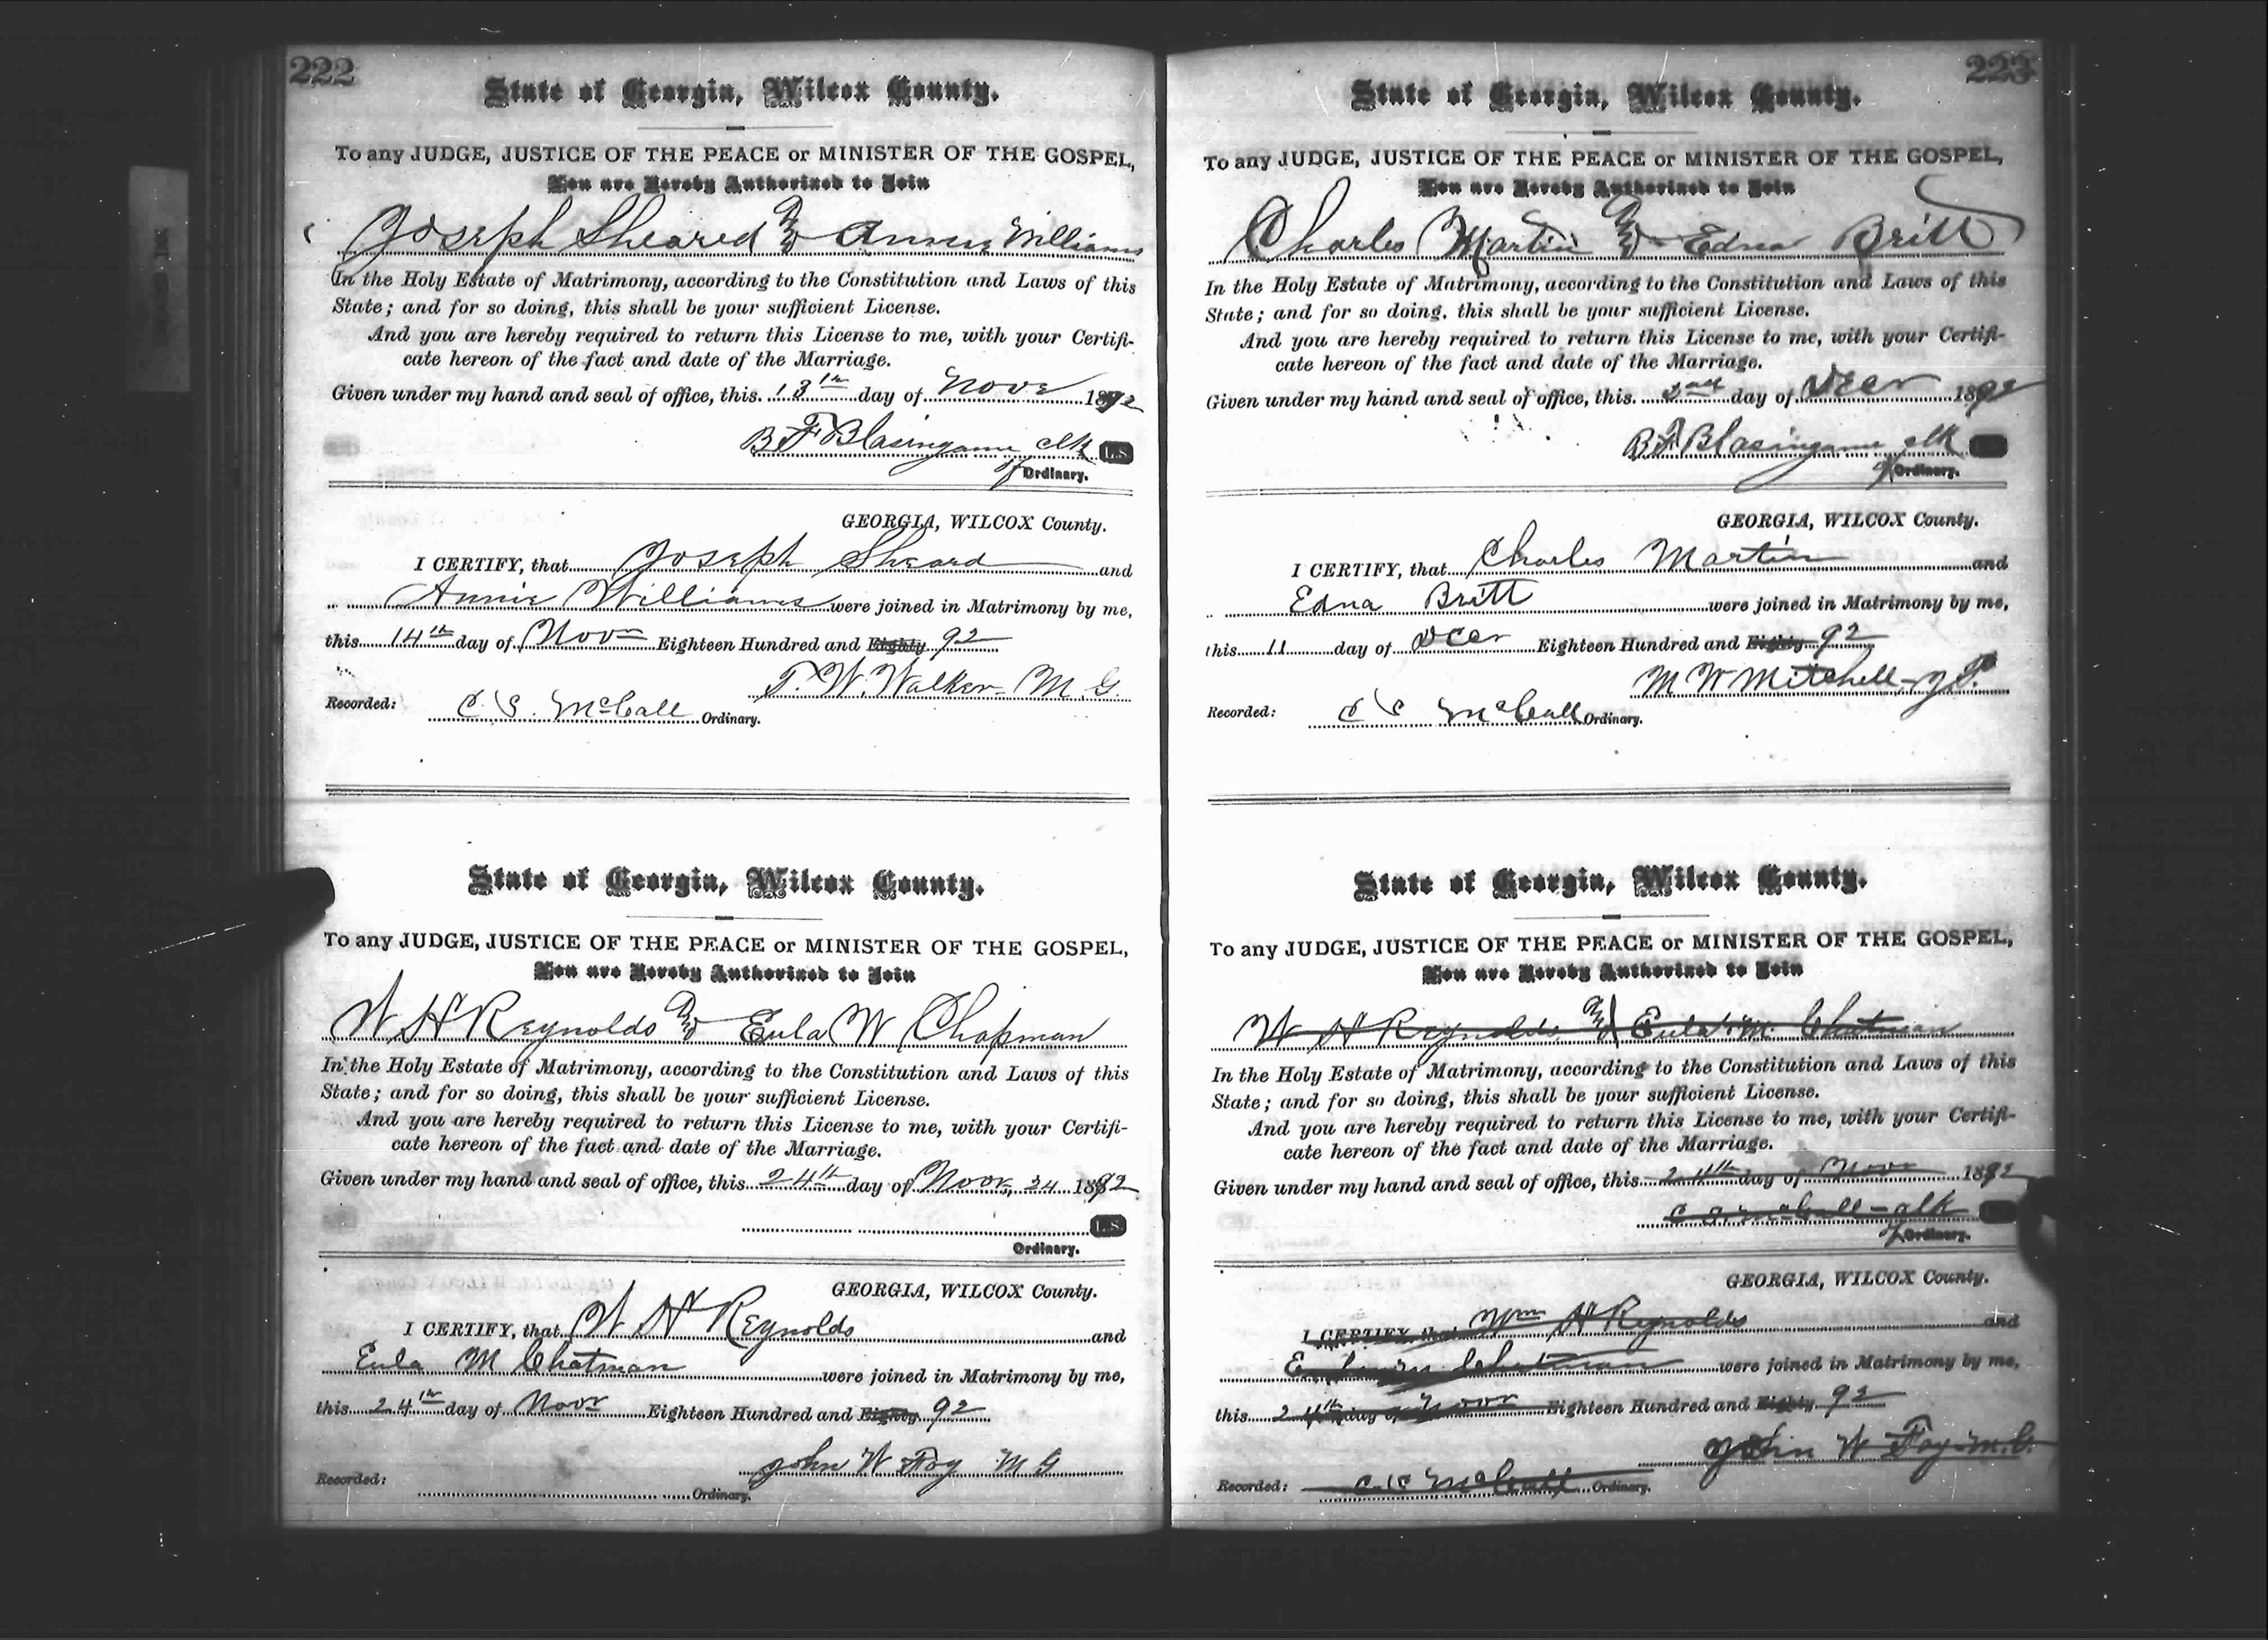 222
State of Georgia, Wilcox County.
To any JUDGE, JUSTICE OF THE PEACE or MINISTER OF THE GOSPEL,
You are Hereby Authorized to Join
Joseph Sheared & Annie Williams
In the Holy Estate of Matrimony, according to the Constitution and Laws of this
State; and for so doing, this shall be your sufficient License.
And you are hereby required to return this License to me, with your Certifi-
cate hereon of the fact and date of the Marriage.
Given under my hand and seal of office, this 13th day of Novr 1892
B F Blasingame clk L.S.
Ordinary.
GEORGIA, WILCOX County.
I CERTIFY, that Joseph Sheard and
Annie Williams were joined in Matrimony by me,
this 14th day of Novr Eighteen Hundred and Eighty 92
T. W. Walker M. G.
Recorded: C. S. McCall Ordinary.
State of Georgia, Wilcox County.
To any JUDGE, JUSTICE OF THE PEACE or MINISTER OF THE GOSPEL,
You are Hereby Authorized to Join
W H Reynolds & Eula W Chapman
In the Holy Estate of Matrimony, according to the Constitution and Laws of this
State; and for so doing, this shall be your sufficient License.
And you are hereby required to return this License to me, with your Certifi-
cate hereon of the fact and date of the Marriage.
Given under my hand and seal of office, this 24th day of Novr, 24 1892
L.S.
Ordinary.
GEORGIA, WILCOX County.
I CERTIFY, that W H Reynolds and
Eula M Chatman were joined in Matrimony by me,
this 24th day of Novr Eighteen Hundred and Eighty 92
John W Foy M G
Recorded: Ordinary.
223
State of Georgia, Wilcox County.
To any JUDGE, JUSTICE OF THE PEACE or MINISTER OF THE GOSPEL,
You are Hereby Authorized to Join
Charles Martin & Edna Britt
In the Holy Estate of Matrimony, according to the Constitution and Laws of this
State; and for so doing, this shall be your sufficient License.
And you are hereby required to return this License to me, with your Certifi-
cate hereon of the fact and date of the Marriage.
Given under my hand and seal of office, this day of Decr 1892
B F Blasingame clk
Ordinary.
GEORGIA, WILCOX County.
I CERTIFY, that Charles Martin and
Edna Britt were joined in Matrimony by me,
this 11 day of Decr Eighteen Hundred and Eighty 92
M W Mitchell J P.
Recorded: C S McCall Ordinary.
State of Georgia, Wilcox County.
To any JUDGE, JUSTICE OF THE PEACE or MINISTER OF THE GOSPEL,
You are Hereby Authorized to Join
W H Reynolds & Eula M. Chatman
In the Holy Estate of Matrimony, according to the Constitution and Laws of this
State; and for so doing, this shall be your sufficient License.
And you are hereby required to return this License to me, with your Certifi-
cate hereon of the fact and date of the Marriage.
Given under my hand and seal of office, this 24th day of Novr 1892
C S McCall clk
Ordinary.
GEORGIA, WILCOX County.
I CERTIFY, that Wm H Reynolds and
Chatman were joined in Matrimony by me,
this 24th day of Novr Eighteen Hundred and Eighty 92
John W Foy M.G.
Recorded: C S McCall Ordinary.